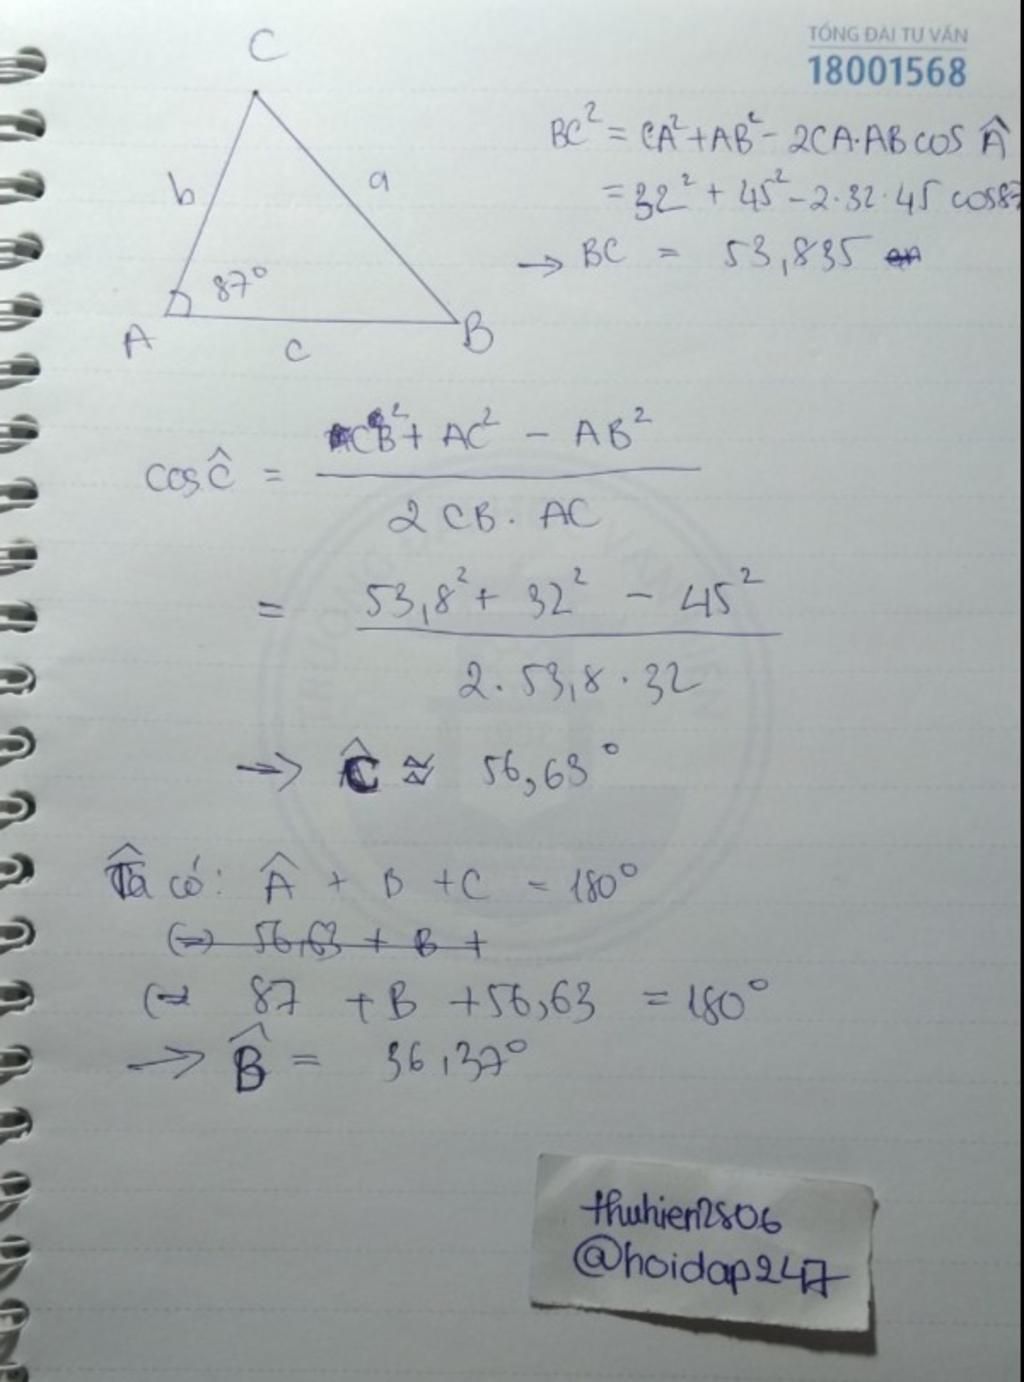 TỔNG ĐÀI TƯ VẤN
18001568
C
b
a
87°
A
c
B
BC² = CA² + AB² - 2CA.AB cos Â
= 32² + 45² - 2.32.45 cos87
→ BC = 53,835
cosĈ = CB² + AC² - AB²
2 CB. AC
= 53,8² + 32² - 45²
2. 53,8 . 32
→ Ĉ ≈ 56,63°
Ta có: Â + B + C = 180°
(=) 56,63 + B +
(=) 87 + B + 56,63 = 180°
→ B̂ = 36,37°
thuhien2806
@hoidap247